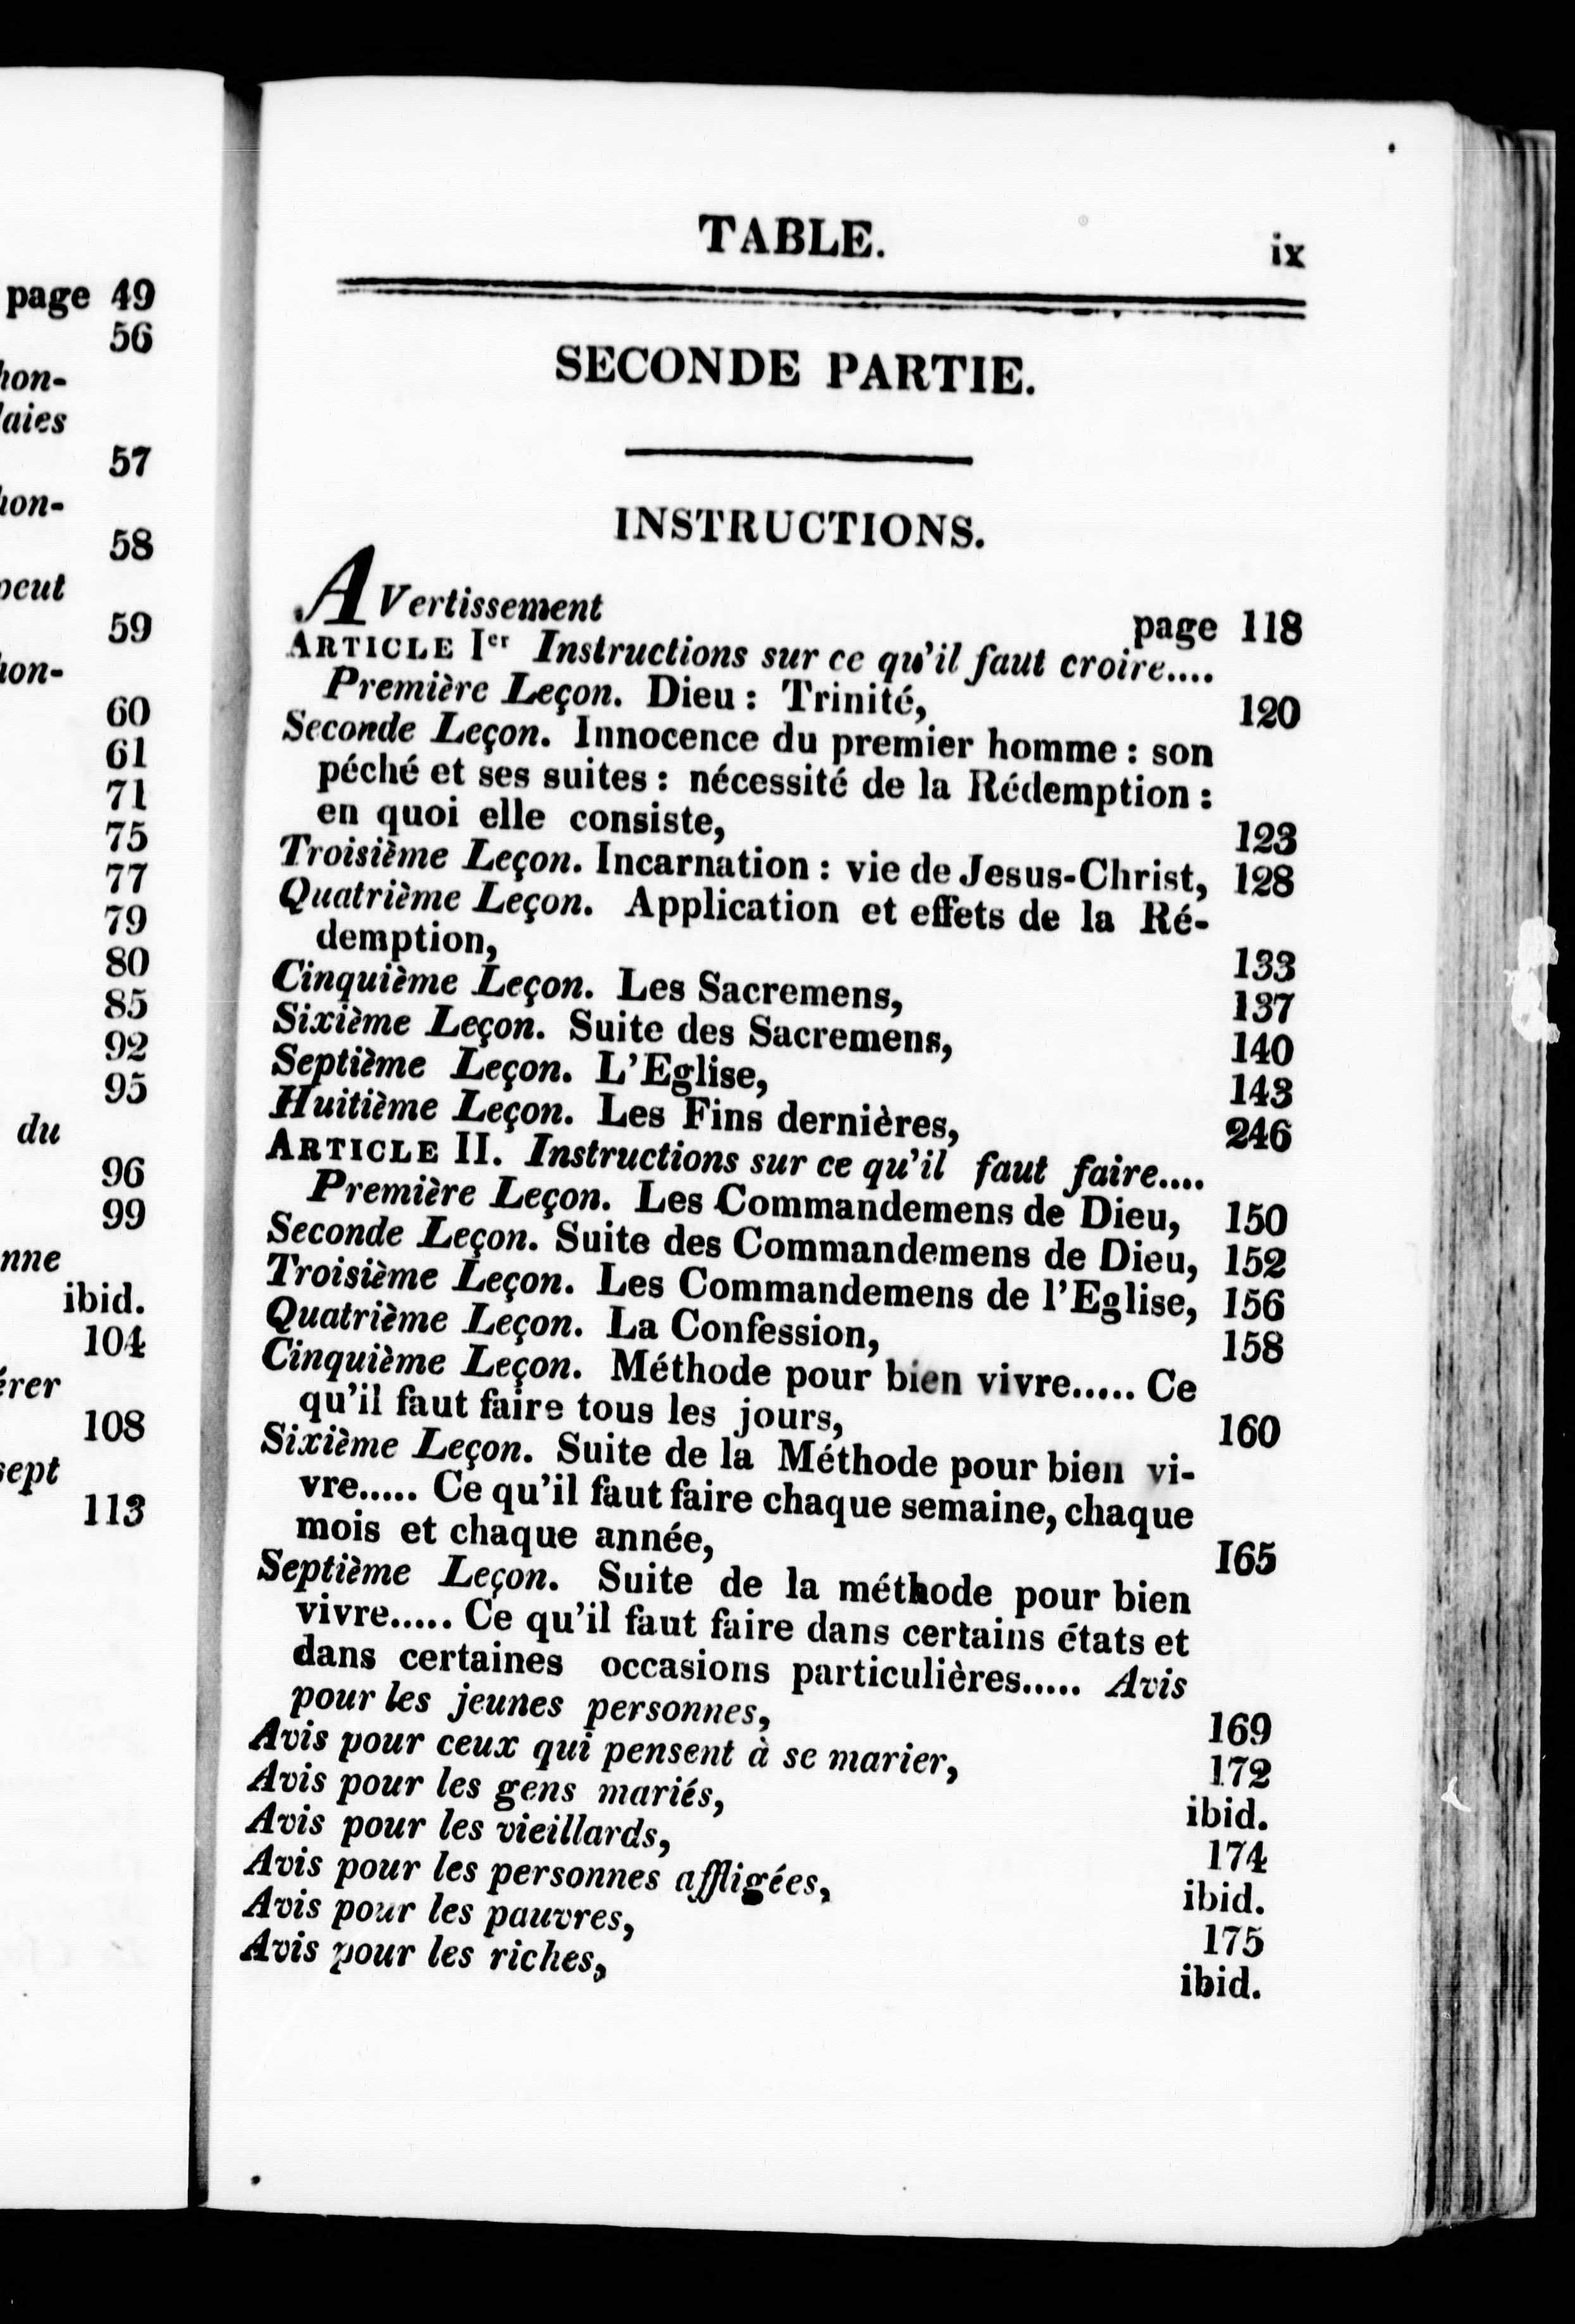 page 49
56
hon-
laies
57
hon-
58
peut
59
hon-
60
61
71
75
77
79
80
85
92
95
du
96
99
nne
ibid.
104
érer
108
sept
113
TABLE. ix
SECONDE PARTIE.
INSTRUCTIONS.
AVertissement page 118
ARTICLE Ier Instructions sur ce qu'il faut croire....
Première Leçon. Dieu : Trinité, 120
Seconde Leçon. Innocence du premier homme : son
péché et ses suites : nécessité de la Rédemption :
en quoi elle consiste, 123
Troisième Leçon. Incarnation : vie de Jesus-Christ, 128
Quatrième Leçon. Application et effets de la Ré-
demption, 133
Cinquième Leçon. Les Sacremens, 137
Sixième Leçon. Suite des Sacremens, 140
Septième Leçon. L'Eglise, 143
Huitième Leçon. Les Fins dernières, 246
ARTICLE II. Instructions sur ce qu'il faut faire....
Première Leçon. Les Commandemens de Dieu, 150
Seconde Leçon. Suite des Commandemens de Dieu, 152
Troisième Leçon. Les Commandemens de l'Eglise, 156
Quatrième Leçon. La Confession, 158
Cinquième Leçon. Méthode pour bien vivre..... Ce
qu'il faut faire tous les jours, 160
Sixième Leçon. Suite de la Méthode pour bien vi-
vre..... Ce qu'il faut faire chaque semaine, chaque
mois et chaque année, 165
Septième Leçon. Suite de la méthode pour bien
vivre..... Ce qu'il faut faire dans certains états et
dans certaines occasions particulières..... Avis
pour les jeunes personnes, 169
Avis pour ceux qui pensent à se marier, 172
Avis pour les gens mariés, ibid.
Avis pour les vieillards, 174
Avis pour les personnes affligées, ibid.
Avis pour les pauvres, 175
Avis pour les riches, ibid.